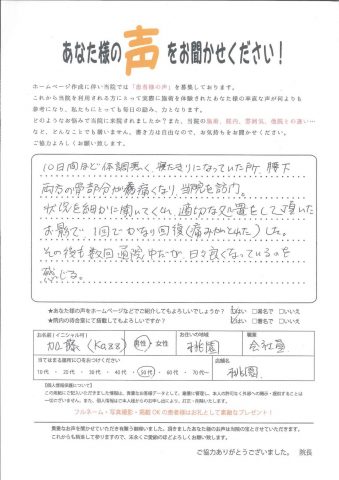 あなた様の声をお聞かせください！
ホームページ作成に伴い当院では「患者様の声」を募集しております。
これから当院を利用される方にとって実際に施術を体験されたあなた様の率直な声が何よりも
参考になり、私たちにとっても毎日の励み、力となります。
どのようなお悩みで当院に来院されましたか？また、当院の施術、院内、雰囲気、他院との違い…
など、どんなことでも構いません。書き方は自由なので、お気持ちをお聞かせください。
ご協力よろしくお願い致します。
10日間ほど体調悪く、寝たきりになっていた所、腰下
両方の臀部分が痛くなり、当院を訪問。
状況を細かに聞いてくれ、適切な処置をして頂いた
お影で、1回でかなり回復(痛みがとれた)した。
その後も数回通院中だが、日々良くなっているのを
感じる。
★あなた様の声をホームページなどでご紹介してもよろしいでしょうか？ □はい □匿名で □いいえ
★院内の待合室にて掲載してもよろしいですか？ □はい □匿名で □いいえ
お名前(イニシャル可) 加藤(Kazz) 男性・女性 お住いの地域 桃園 職業 会社員
当てはまる箇所に○をおつけください 店舗名
10代・20代・30代・40代・50代・60代・70代～ 桃園
【個人情報保護について】
この用紙にご記入頂きました情報は、貴重なお客様データとして、厳重に管理し、本人の許可なく外部への開示・提供することは
一切ございません。また、個人情報は
フルネーム・写真撮影・掲載OKの患者様はお礼として素敵なプレゼント！
貴重なお声を聞かせていただき有難う御座いました。頂きましたあなた様のお声は当院の宝とさせていただきます。
これからも精進して参りますので、末永くご愛顧のほどよろしくお願い致します。
ご協力ありがとうございました。 院長